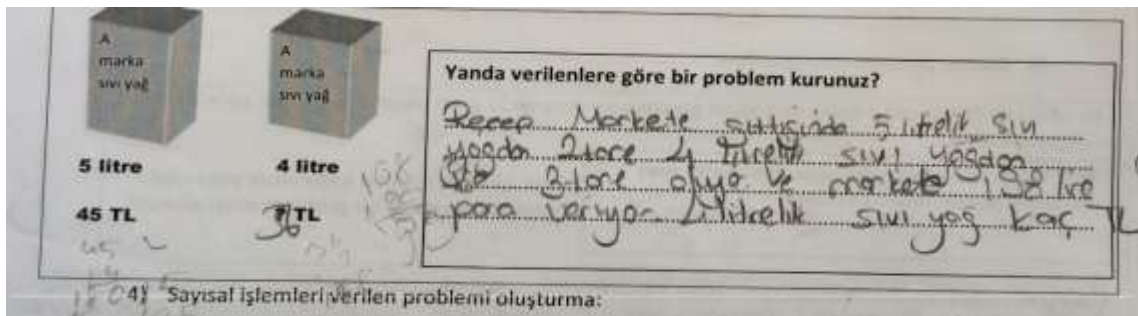 A
marka
sıvı yağ
A
marka
sıvı yağ
5 litre
4 litre
45 TL
36 TL
45
Yanda verilenlere göre bir problem kurunuz?
Recep Markete gittiğinde 5 litrelik sıvı
yağdan 2 tane 4 litrelik sıvı yağdan
3 tane alıyo ve markete 198 lire
para veriyor 4 litrelik sıvı yağ kaç TL
4) Sayısal işlemleri verilen problemi oluşturma: